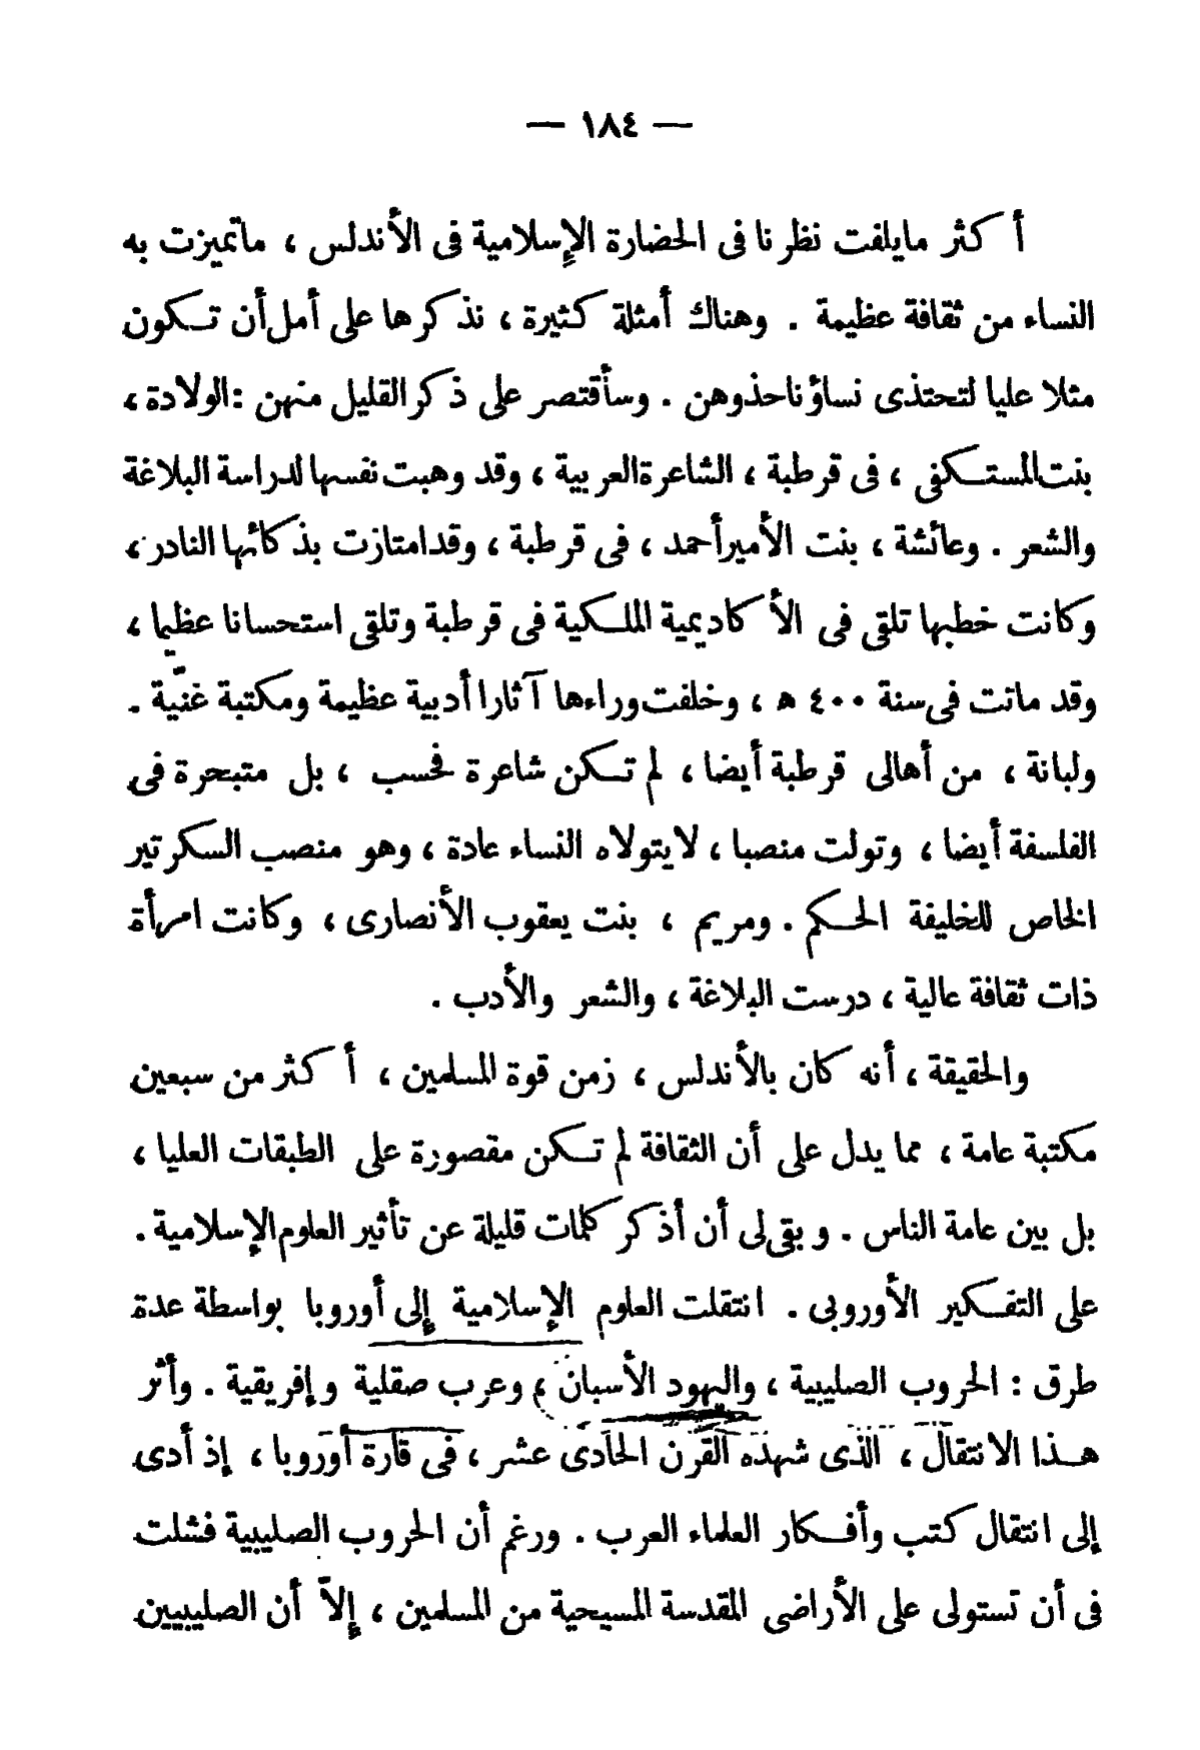 — ١٨٤ —
أكثر مايلفت نظرنا فى الحضارة الإسلامية فى الأندلس ، ماتميزت به
النساء من ثقافة عظيمة . وهناك أمثلة كثيرة ، نذكرها على أمل أن تكون
مثلا عليا لتحتذى نساؤنا حذوهن . وسأقتصر على ذكر القليل منهن : الولادة ،
بنت المستكفى ، فى قرطبة ، الشاعرة العربية ، وقد وهبت نفسها لدراسة البلاغة
والشعر . وعائشة ، بنت الأمير أحمد ، فى قرطبة ، وقد امتازت بذكائها النادر ،
وكانت خطبها تلقى فى الأكاديمية الملكية فى قرطبة وتلقى استحسانا عظيما ،
وقد ماتت فى سنة ٤٠٠ ه ، وخلفت وراءها آثارا أدبية عظيمة ومكتبة غنيّة .
ولبانة ، من أهالى قرطبة أيضا ، لم تكن شاعرة فحسب ، بل متبحرة فى
الفلسفة أيضا ، وتولت منصبا ، لايتولاه النساء عادة ، وهو منصب السكرتير
الخاص للخليفة الحكم . ومريم ، بنت يعقوب الأنصارى ، وكانت امرأة
ذات ثقافة عالية ، درست البلاغة ، والشعر والأدب .
والحقيقة ، أنه كان بالأندلس ، زمن قوة المسلمين ، أكثر من سبعين
مكتبة عامة ، مما يدل على أن الثقافة لم تكن مقصورة على الطبقات العليا ،
بل بين عامة الناس . وبقى لى أن أذكر كلمات قليلة عن تأثير العلوم الإسلامية .
على التفكير الأوروبى . انتقلت العلوم الإسلامية إلى أوروبا بواسطة عدة
طرق : الحروب الصليبية ، واليهود الأسبان ، وعرب صقلية وإفريقية . وأثر
هذا الانتقال ، الذى شهده القرن الحادى عشر ، فى قارة أوروبا ، إذ أدى
إلى انتقال كتب وأفكار العلماء العرب . ورغم أن الحروب الصليبية فشلت
فى أن تستولى على الأراضى المقدسة المسيحية من المسلمين ، إلاّ أن الصليبيين